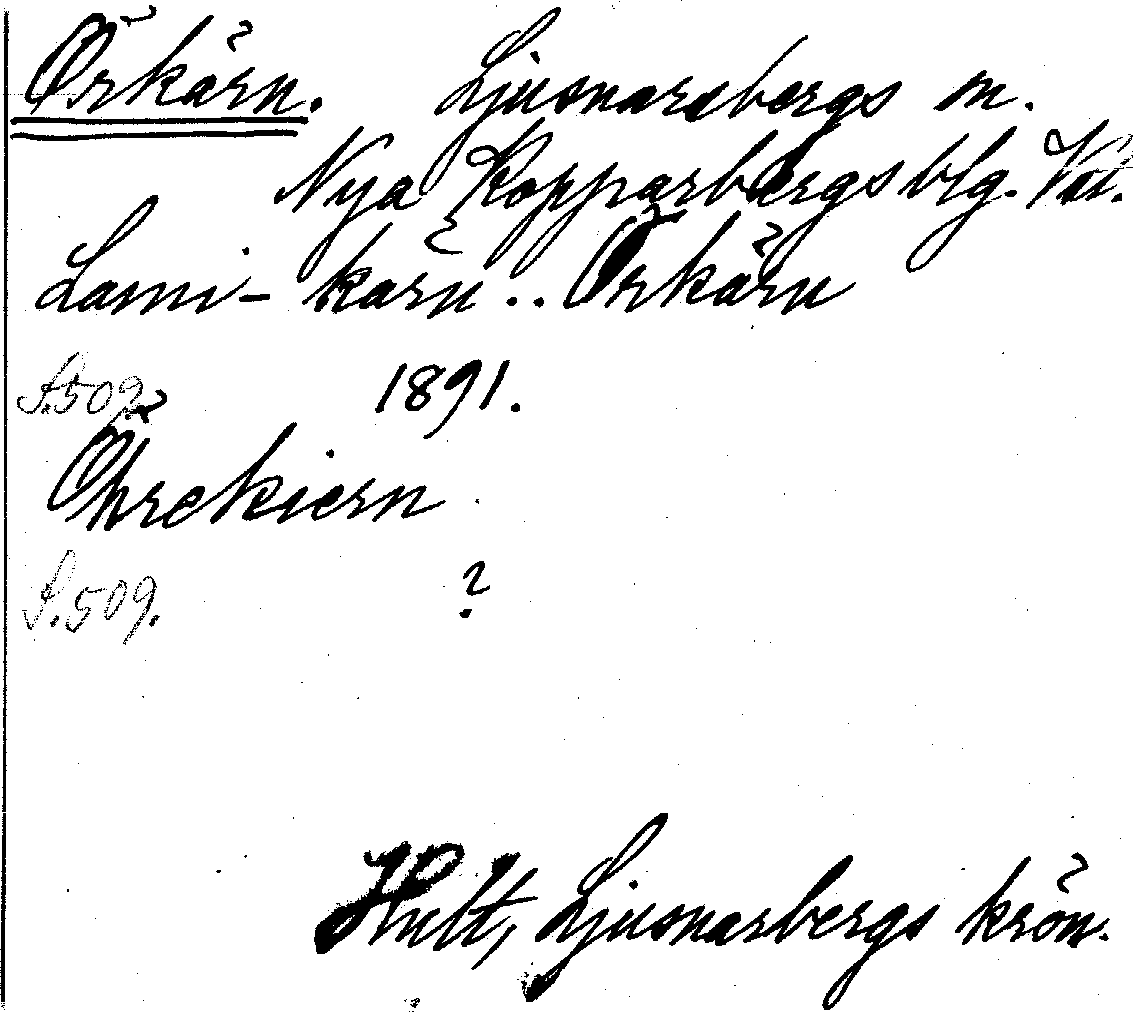 Örkärn. Ljusnarsbergs sn.
Nya Kopparbergs blg. Vstl.
Lomi - kärn .. Örkärn
S. 509. 1891.
Öhrekiern
S. 509. ?
Hult, Ljusnarsbergs krön.